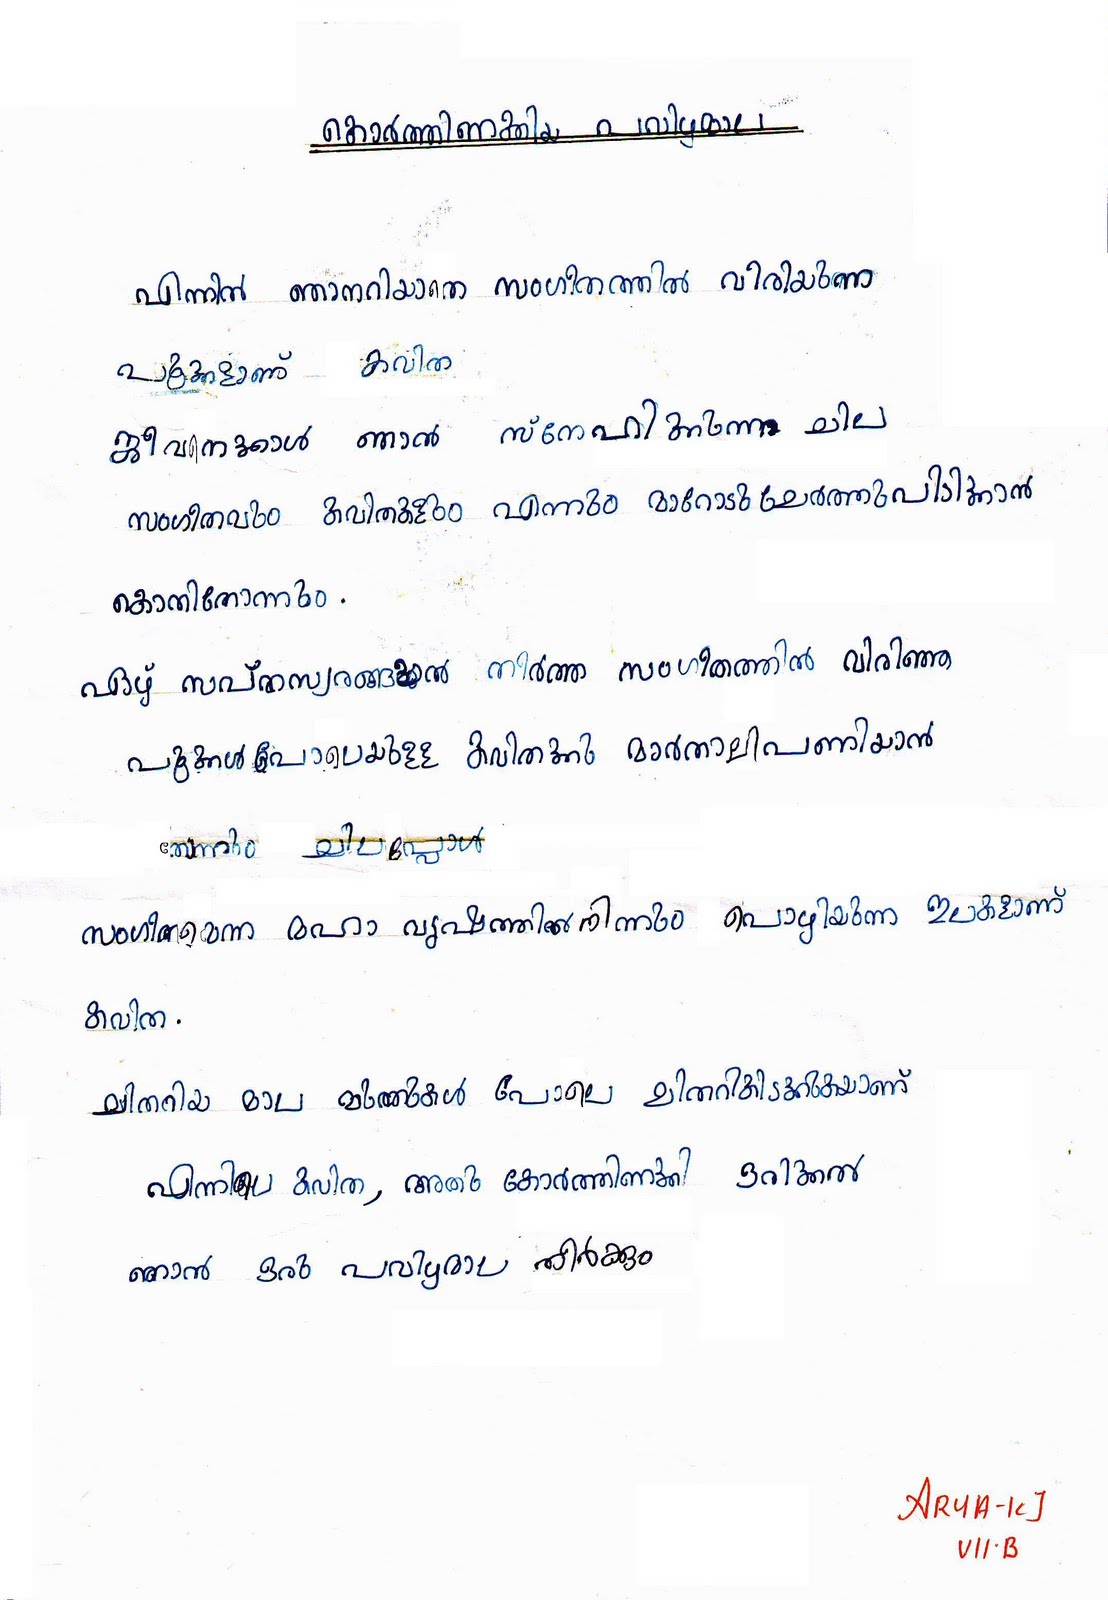 കൊർത്തിണക്കിയ പവിഴമാല
എന്നിൽ ഞാനറിയാതെ സംഗീതത്തിൽ വിരിയുന്ന
പൂക്കളാണ് കവിത
ജീവനേക്കാൾ ഞാൻ സ്നേഹിക്കുന്ന ചില
സംഗീതവും കവിതകളും എന്നും മാറോടു ചേർത്തുപിടിക്കാൻ
കൊതിതോന്നും.
ഏഴ് സപ്തസ്വരങ്ങളാൽ തീർത്ത സംഗീതത്തിൽ വിരിഞ്ഞ
പൂക്കൾ പോലെയുള്ള കവിതക്കു മാർതാലിപണിയാൻ
തോന്നും ചിലപ്പോൾ
സംഗീതമെന്ന മഹാ വൃഷത്തിൽനിന്നും പൊഴിയുന്ന ഇലകളാണ്
കവിത.
ചിതറിയ മാല മുത്തുകൾ പോലെ ചിതറികിടക്കുകയാണ്
എന്നിലെ കവിത, അതു കോർത്തിണക്കി ഒരിക്കൽ
ഞാൻ ഒരു പവിഴമാല തീർക്കും
ARYA-KJ
VII.B